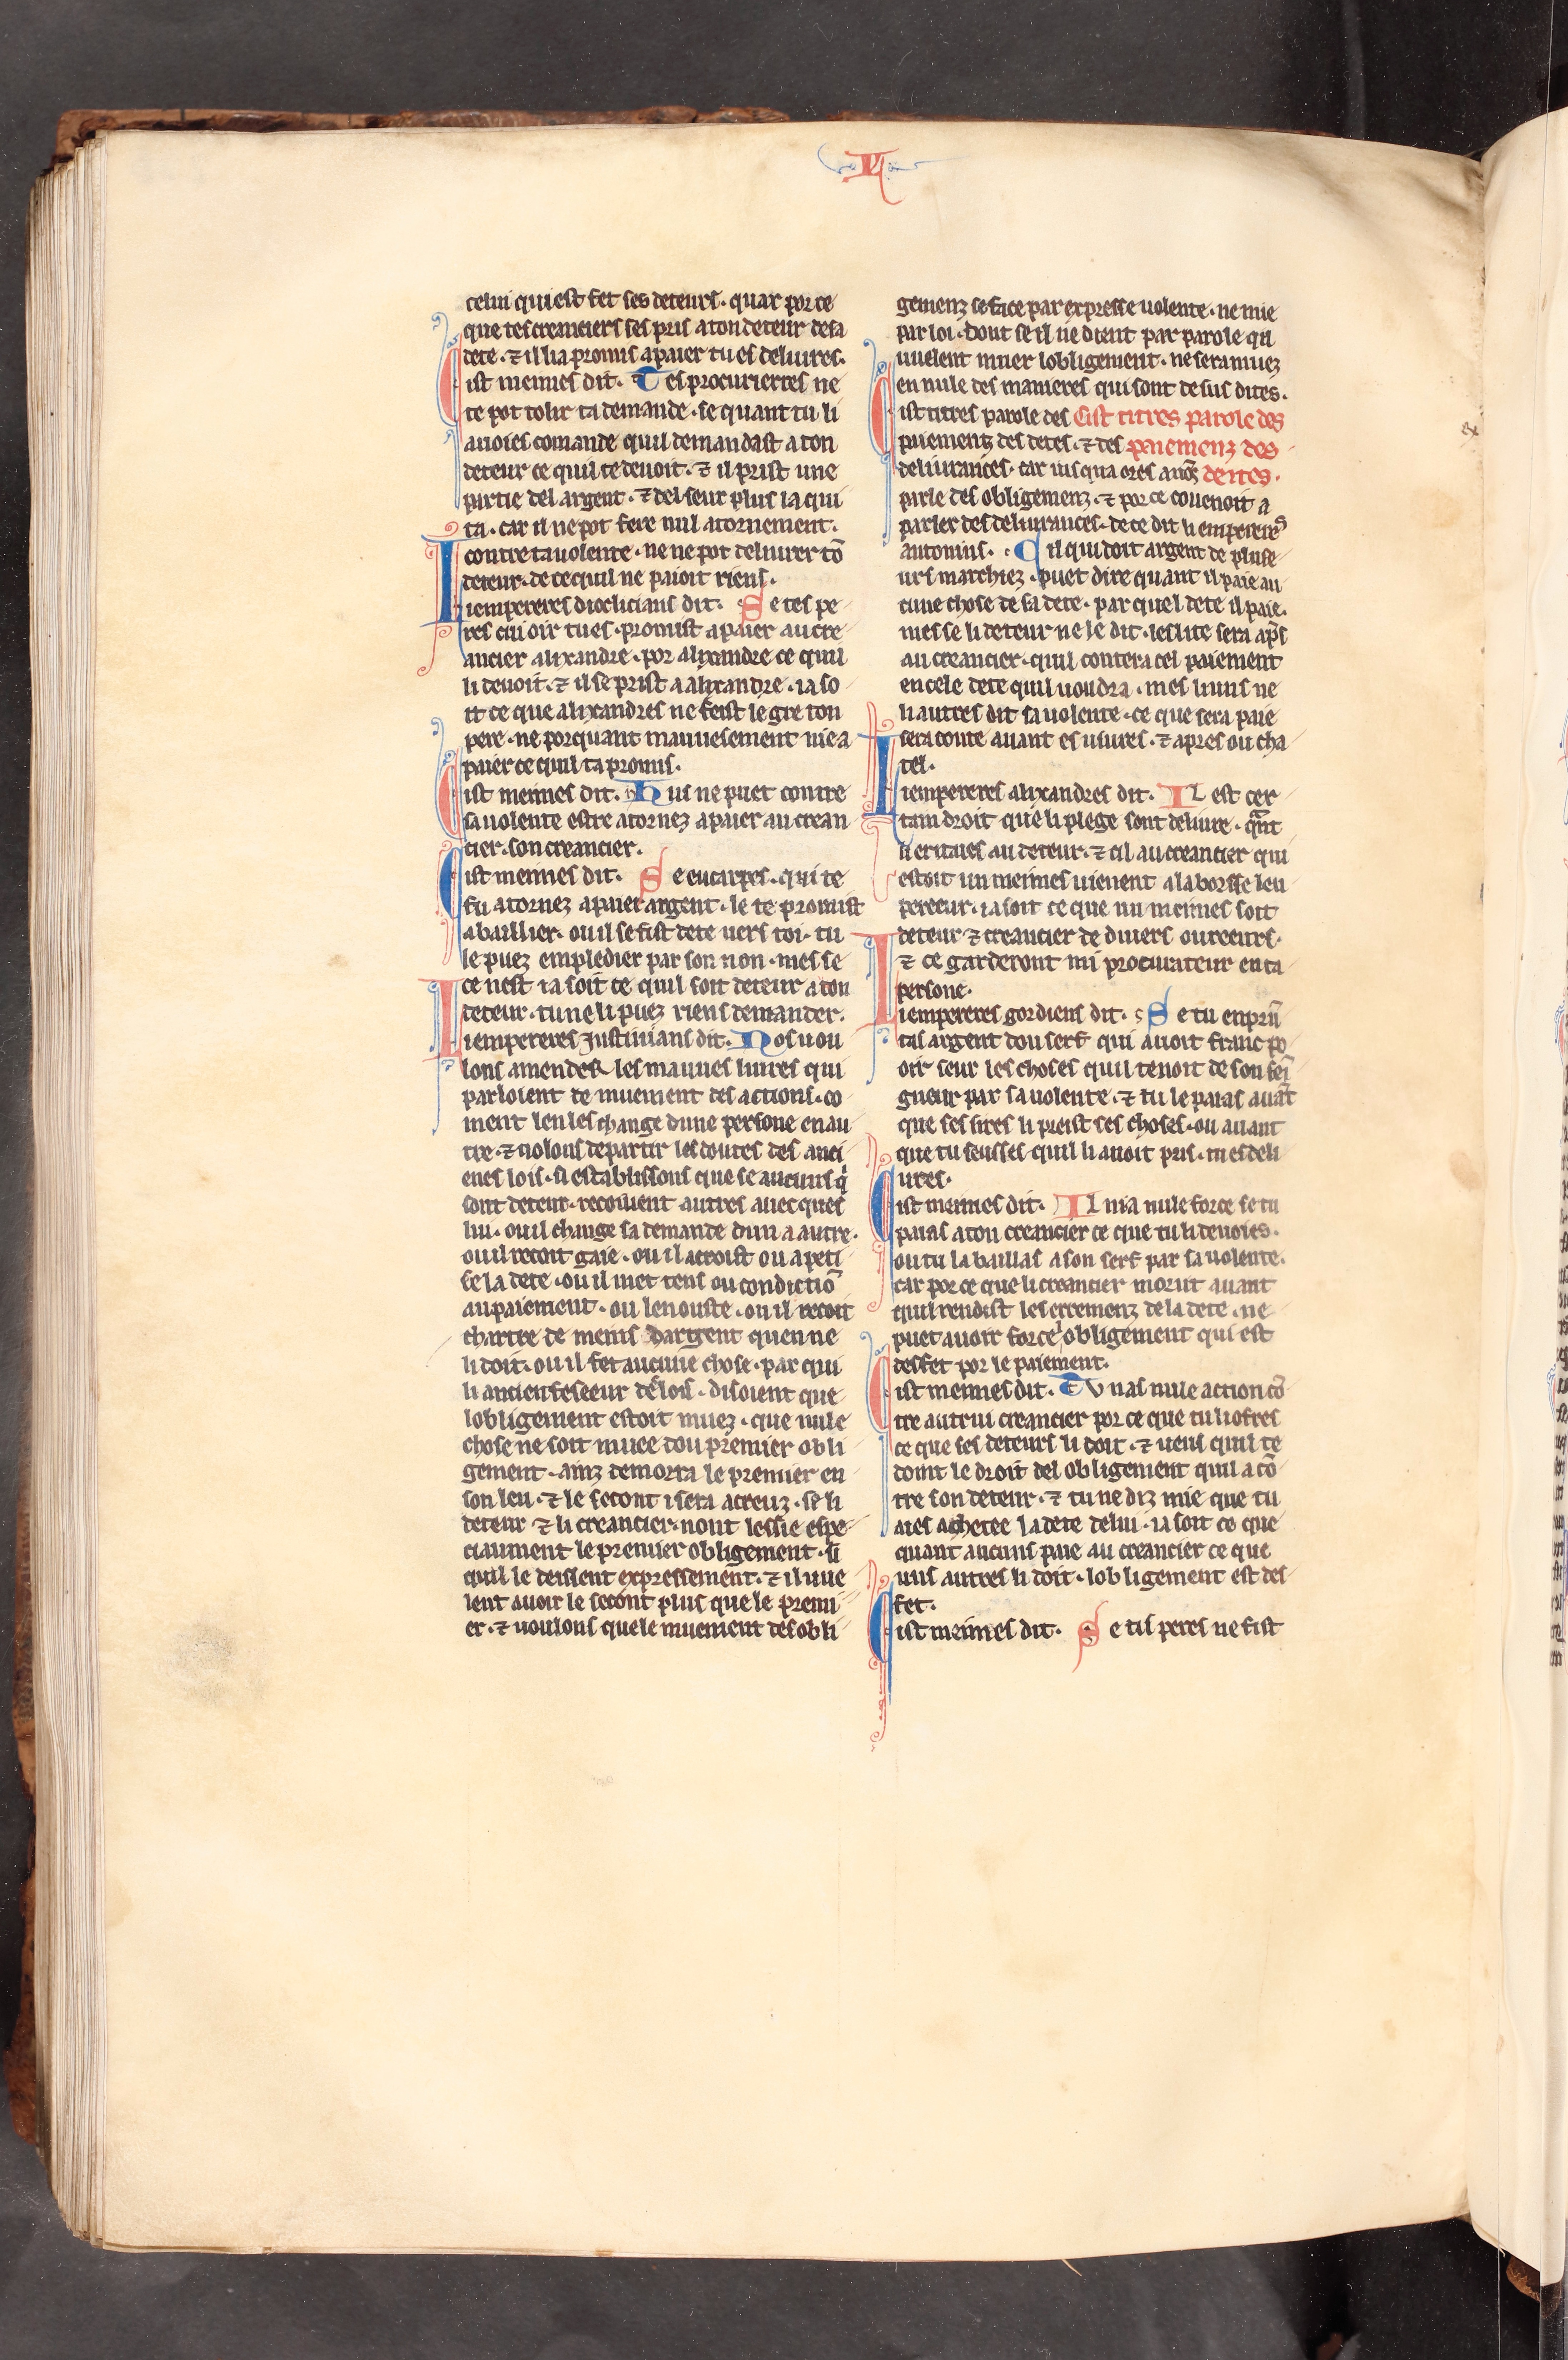 L
celui qui est fet ses deteurs. quar por ce
que tes creanciers ses pris a ton deteur de sa
dete. ⁊ il li a promis a paier tu es deliures.
Cist meimes dit. Tes procurierres ne
te pot tolir ta demande. se quant tu li
auoies comande quil demandast a ton
deteur ce quil te deuoit. ⁊ il prist une
partie del argent. ⁊ del seur plus la qui
ta. car il ne pot fere nul atornement.
contre ta uolente. ne ne pot deliurer tō
deteur. de ce quil ne paioit riens.
Li empereres dioclicians dit. Se tes pe
res cui oir tu es. promist a paier au cre
ancier alixandre. por alixandre ce quil
li deuoit. ⁊ il se prist a alixandre. ia so
it ce que alixandres ne feist le gre ton
pere. ne porquant mauuesement nie a
paier ce quil ta promis.
Cist meimes dit. Nus ne puet contre
sa uolente estre atornez a paier au crean
cier. son creancier.
Cist meimes dit. Se eucarpes. qui te
fu atornez a paier argent. le te promist
a baillier. ou il se fist dete uers toi. tu
le puez empledier par son non. mes se
ce nest ia soit ce quil soit deteur a ton
deteur. tu ne li puez riens demander.
Li empereres Justinians dit. Nos uou
lons amender les mauues liures qui
parloient de muement des actions. co
ment len les change dune persone en au
tre. ⁊ uolons departir les doutes des anci
enes lois. si establissons que se aucuns q̇
sont deteur. recoiuent autres auecques
lui. ou il change sa demande dun a autre.
ou il recoit gaie. ou il acroist ou apeti
se la dete. ou il met tens ou condictiō
au paiement. ou len ouste. ou il recoit
chartre de meins dargent quen ne
li doit. ou il fet aucune chose. par qui
li ancien feseeur de lois. disoient que
lobligement estoit muez. que nule
chose ne soit muee dou premier obli
gement. ainz demorra le premier en
son leu. ⁊ le secont i sera acreuz. se li
deteur ⁊ li creancier. nont lessie espe
ciaument le premier obligement. si
quil le deissent expressement. ⁊ il uue
lent auoir le secont plus que le premi
er. ⁊ uoulons que le muement des obli
gemenz se face par expresse uolente. ne mie
par loi. dont se il ne dient par parole qu
uuelent muer lobligement. ne sera muez
en nule des manieres qui sont de sus dites.
Cist titres parole des Cist titres parole des
paiemenz des detes. ⁊ des paiemenz des
deliurances. car iusqua ores auōs dettes.
parle des obligemenz. ⁊ por ce couenoit a
parler des deliurances. de ce dit li empereres
antonius. Cil qui doit argent de pluse
urs marchiez. puet dire quant il paie au
cune chose de sa dete. par quel dete il paie.
mes se li deteur ne le dit. leslite sera ap̄s
au creancier. quil contera cel paiement
en cele dete quil uoudra. mes li uns ne
li autres dit sa uolente. ce que sera paie
sera conte auant es usures. ⁊ apres ou cha
tel.
Li empereres alixandres dit. Il est cer
tain droit que li plege sont deliure. qant
li eritaies au deteur. ⁊ cil au creancier qui
estoit un meimes uienent a la borsse leu
pereeur. ia soit ce que nu meimes soit
deteur ⁊ creancier de diuers ouureurs.
⁊ ce garderont mi procurateur en ta
persone.
Li empereres gordiens dit. Se tu enprū
tas argent dou serf qui auoit franc po
oir seur les choses quil tenoit de son sei
gneur par sa uolente. ⁊ tu le paias auāt
que ses sires li preist ses choses. ou auant
que tu seusses quil li auoit pris. tu es deli
ures.
Cist meimes dit. Il nia nule force se tu
paias a ton creancier ce que tu li deuoies.
ou tu la baillas a son serf par sa uolente.
car por ce que li creancier morut auant
quil rendist les erremenz de la dete. ne
puet auoir force lobligement qui est
desfet por le paiement.
Cist meimes dit. Tu nas nule action cō
tre autrui creancier por ce que tu li ofres
ce que ses deteurs li doit. ⁊ ueus quil te
doint le droit del obligement quil a cō
tre son deteur. ⁊ tu ne diz mie que tu
aies achetee la dete delui. ia soit ce que
quant aucuns paie au creancier ce que
uns autres li doit. lobligement est des
fet.
Cist meimes dit. Se tis peres ne fist